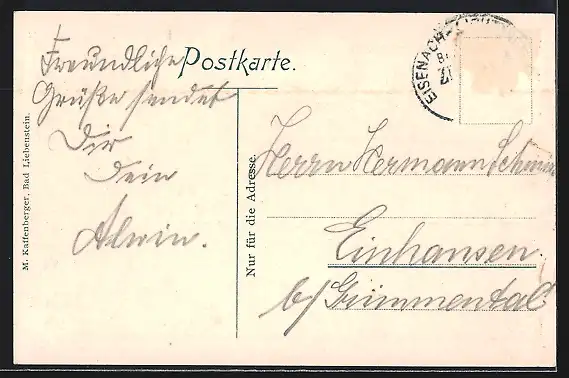 Postkarte.
Freundliche
Grüße sendet
Dir
Dein
Alwin.
M. Kaffenberger, Bad Liebenstein.
Nur für die Adresse.
EISENACH
Herrn Hermann
Einhausen.
b/Grimmental